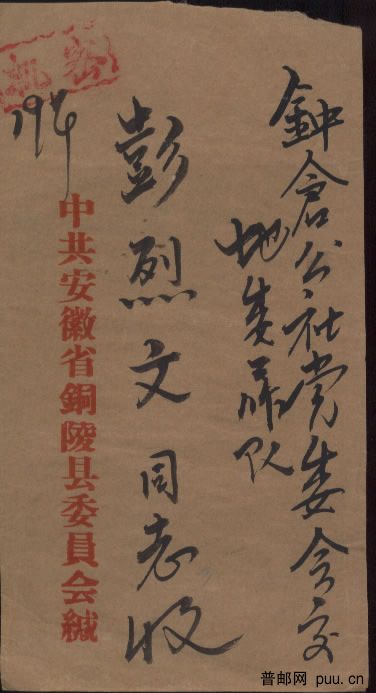 鈡仓公社党委会交
地委 队
彭烈文同志收
中共安徽省銅陵县委員会緘
机密
普邮网 puu.cn